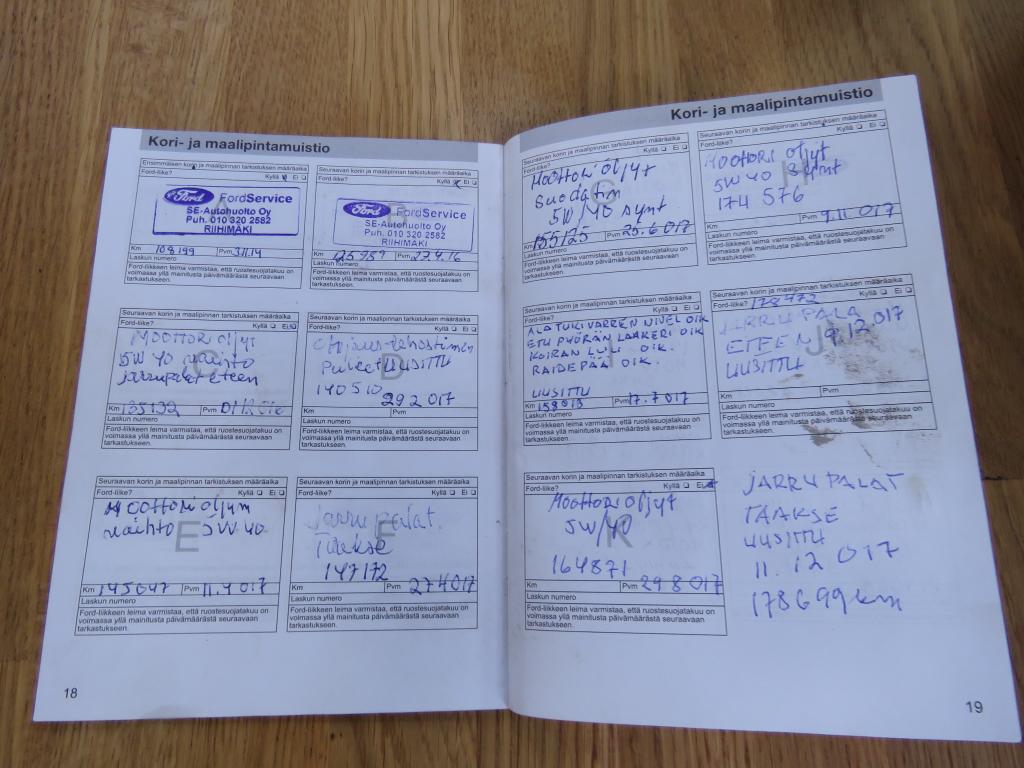 Kori- ja maalipintamuistio
Ensimmäisen korin ja maalipinnan tarkistuksen määräaika
Ford-liike? Kyllä Ei
Ford FordService
SE-Autohuolto Oy
Puh. 010 320 2582
RIIHIMÄKI
Km 108199 Pvm 3.11.14
Laskun numero
Ford-liikkeen leima varmistaa, että ruostesuojatakuu on
voimassa yllä mainitusta päivämäärästä seuraavaan
tarkastukseen.
Seuraavan korin ja maalipinnan tarkistuksen määräaika
Ford-liike? Kyllä Ei
Ford FordService
SE-Autohuolto Oy
Puh. 010 320 2582
RIIHIMÄKI
Km 125989 Pvm 27.4.16
Laskun numero
Ford-liikkeen leima varmistaa, että ruostesuojatakuu on
voimassa yllä mainitusta päivämäärästä seuraavaan
tarkastukseen.
Seuraavan korin ja maalipinnan tarkistuksen määräaika
Ford-liike? Kyllä Ei
MOOTTORI öljyt
5W 40 vaihto
jarrupalat eteen
Km 135132 Pvm
Laskun numero
Ford-liikkeen leima varmistaa, että ruostesuojatakuu on
voimassa yllä mainitusta päivämäärästä seuraavaan
tarkastukseen.
Seuraavan korin ja maalipinnan tarkistuksen määräaika
Ford-liike? Kyllä Ei
D
Ohjaus-tehostimen
UUSITTU
140510
Km Pvm 29 2 017
Laskun numero
Ford-liikkeen leima varmistaa, että ruostesuojatakuu on
voimassa yllä mainitusta päivämäärästä seuraavaan
tarkastukseen.
Seuraavan korin ja maalipinnan tarkistuksen määräaika
Ford-liike? Kyllä Ei
MOOTTORI öljyn
vaihto 5W 40
E
Km 145047 Pvm 11.4 017
Laskun numero
Ford-liikkeen leima varmistaa, että ruostesuojatakuu on
voimassa yllä mainitusta päivämäärästä seuraavaan
tarkastukseen.
Seuraavan korin ja maalipinnan tarkistuksen määräaika
Ford-liike? Kyllä Ei
Jarru palat.
Taakse
F
147172
Km Pvm 27 4 017
Laskun numero
Ford-liikkeen leima varmistaa, että ruostesuojatakuu on
voimassa yllä mainitusta päivämäärästä seuraavaan
tarkastukseen.
18
Kori- ja maalipintamuistio
Seuraavan korin ja maalipinnan tarkistuksen määräaika
Ford-liike? Kyllä Ei
MOOTTORI öljyt
Suodatin
G
5W/40 synt
Km 155125 Pvm 25.6 017
Laskun numero
Ford-liikkeen leima varmistaa, että ruostesuojatakuu on
voimassa yllä mainitusta päivämäärästä seuraavaan
tarkastukseen.
Seuraavan korin ja maalipinnan tarkistuksen määräaika
Ford-liike? Kyllä Ei
MOOTTORI öljyt
5W 40 synt
H
174 576
Km Pvm 9.11 017
Laskun numero
Ford-liikkeen leima varmistaa, että ruostesuojatakuu on
voimassa yllä mainitusta päivämäärästä seuraavaan
tarkastukseen.
Seuraavan korin ja maalipinnan tarkistuksen määräaika
Ford-liike? Kyllä Ei
ALATUKIVARREN NIVEL OIK
ETU PYÖRÄN LAAKERI OIK
KOIRAN LUU OIK.
RAIDEPÄÄ OIK.
UUSITTU
Km 158013 Pvm 17.7 017
Laskun numero
Ford-liikkeen leima varmistaa, että ruostesuojatakuu on
voimassa yllä mainitusta päivämäärästä seuraavaan
tarkastukseen.
Seuraavan korin ja maalipinnan tarkistuksen määräaika
Ford-liike? 178472 Kyllä Ei
JARRU PALA
ETEEN 9.12 017
J
UUSITTU
Km Pvm
Laskun numero
Ford-liikkeen leima varmistaa, että ruostesuojatakuu on
voimassa yllä mainitusta päivämäärästä seuraavaan
tarkastukseen.
Seuraavan korin ja maalipinnan tarkistuksen määräaika
Ford-liike? Kyllä Ei
MOOTTORI öljyt
5W/40
K
164871
Km Pvm 29 8 017
Laskun numero
Ford-liikkeen leima varmistaa, että ruostesuojatakuu on
voimassa yllä mainitusta päivämäärästä seuraavaan
tarkastukseen.
JARRU PALAT
TAAKSE
UUSITTU
11. 12 017
178699 km
19